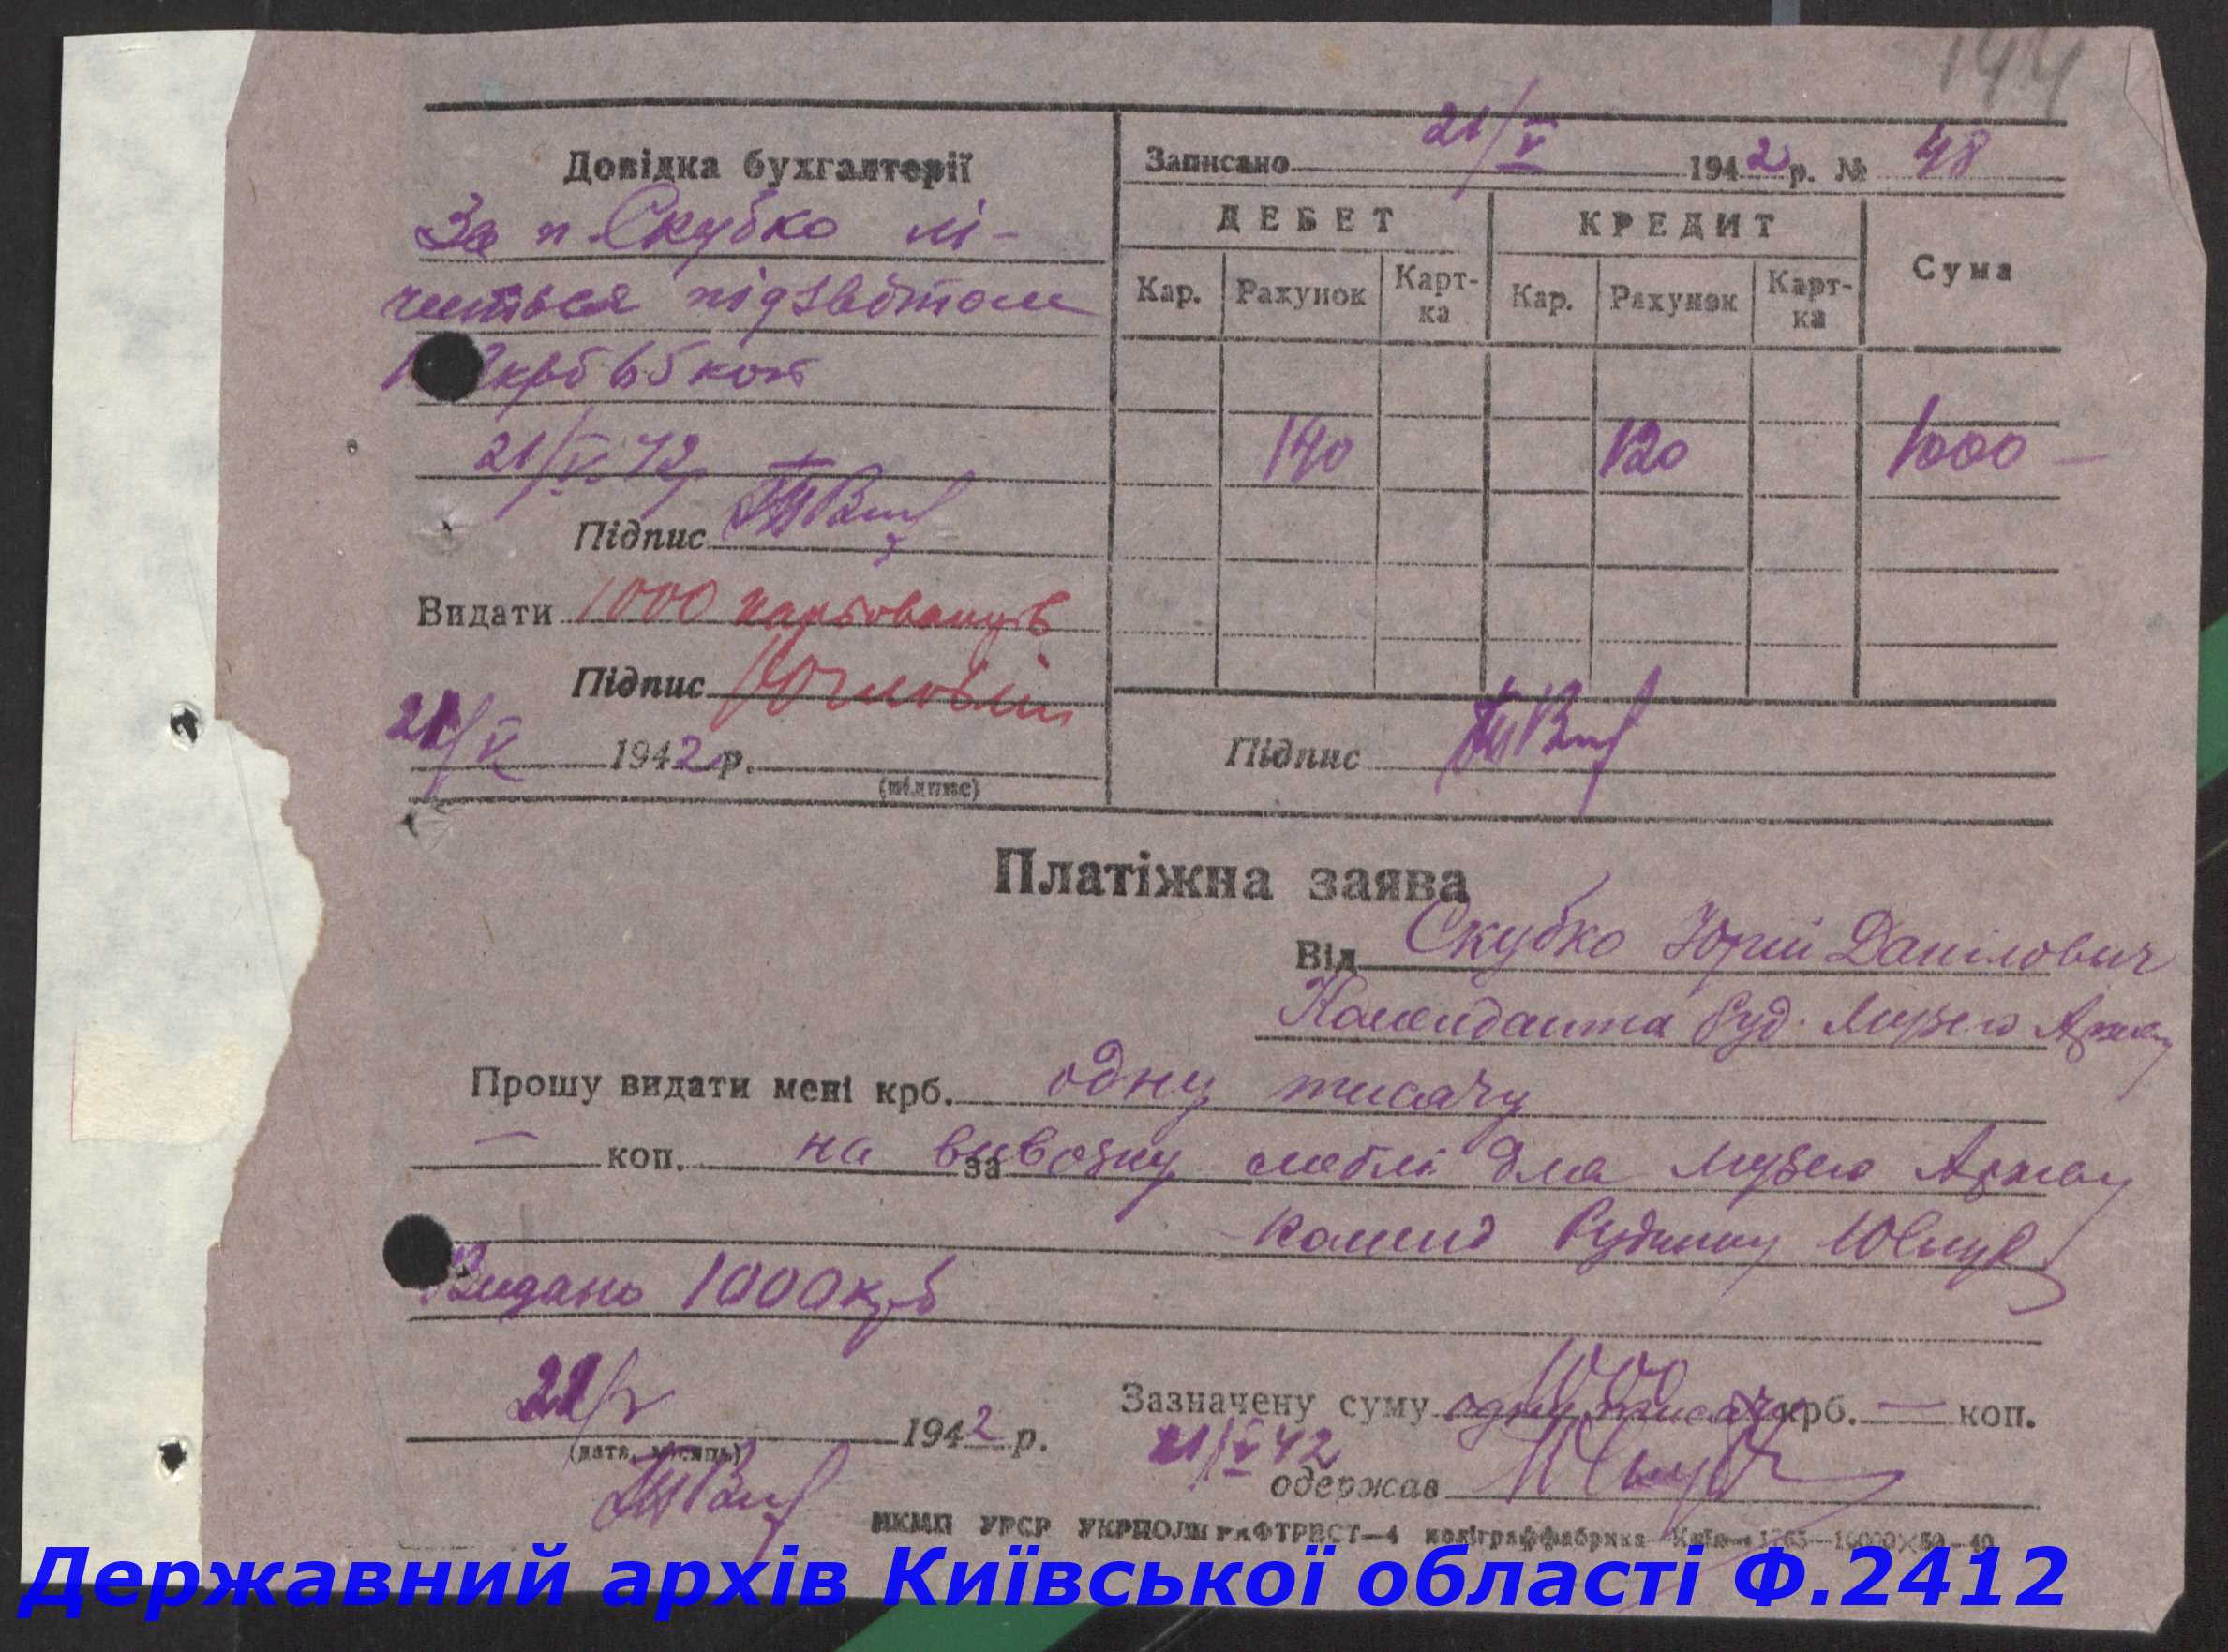 144
Довідка бухгалтерії
За п. Скубко лі-
читься підзвітом
крб 65 коп
21/V 42
Підпис
Видати 1000 карбованців
Підпис
21/V 1942 р.
(підпис)
Записано 21/V 1942 р. № 48
ДЕБЕТ КРЕДИТ Сума
Кар. Рахунок Карт-ка Кар. Рахунок Карт-ка
140 120 1000 —
Підпис
Платіжна заява
Від Скубко Юрій Данілович
Коменданта буд. Музею
Прошу видати мені крб. одну тисячу
— коп. за на вивозку меблі для Музею
Коменд будинку
Видано 1000 крб
21/V 1942 р.
(дата, місяць)
Зазначену суму 1000 одну тисячу крб. — коп.
21/V 42
одержав
НКМП УРСР УКРПОЛІГРАФТРЕСТ—4 поліграффабрика Київ
Державний архів Київської області Ф.2412